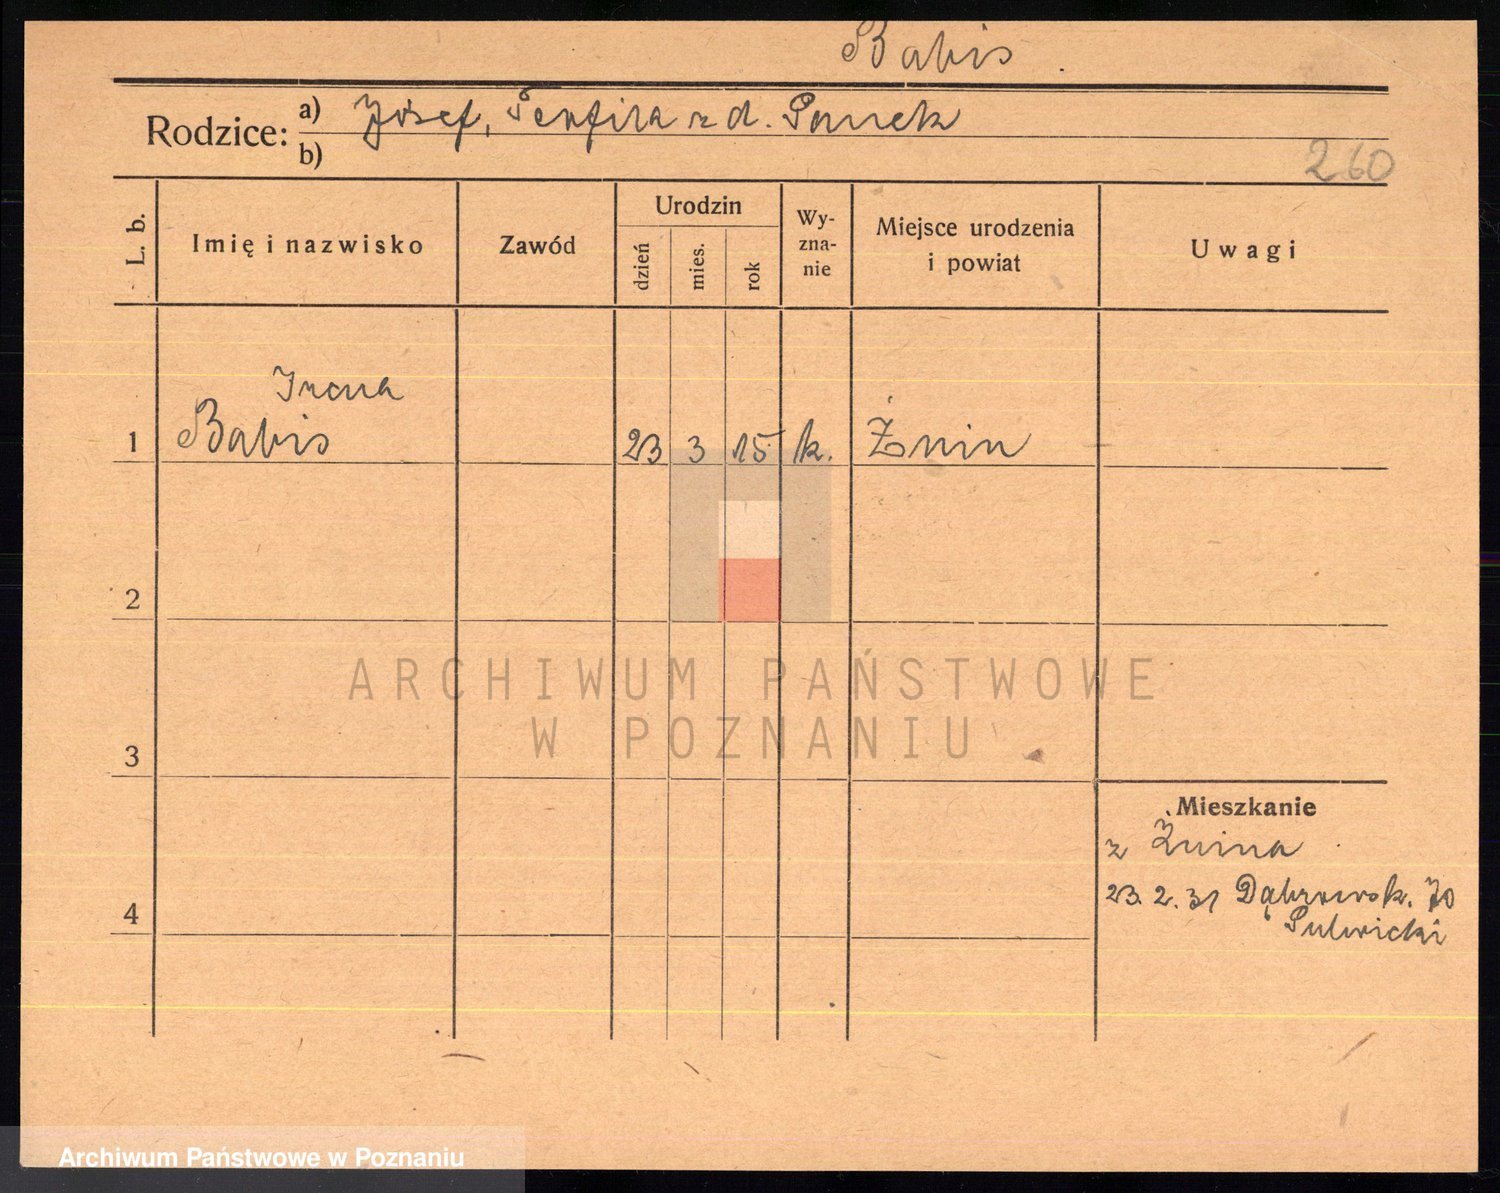 Babis
Rodzice: a) Józef, Teofila z d. Panek
b)
260
L. b.
Imię i nazwisko
Zawód
Urodzin
dzień
mies.
rok
Wy-
zna-
nie
Miejsce urodzenia
i powiat
Uwagi
Irena
1 Babis 23 3 15 k. Żnin
2
3
4
Mieszkanie
z Żnina
23. 2. 31 Dąbrowsk. 70
Pulwicki
ARCHIWUM PAŃSTWOWE
W POZNANIU
Archiwum Państwowe w Poznaniu